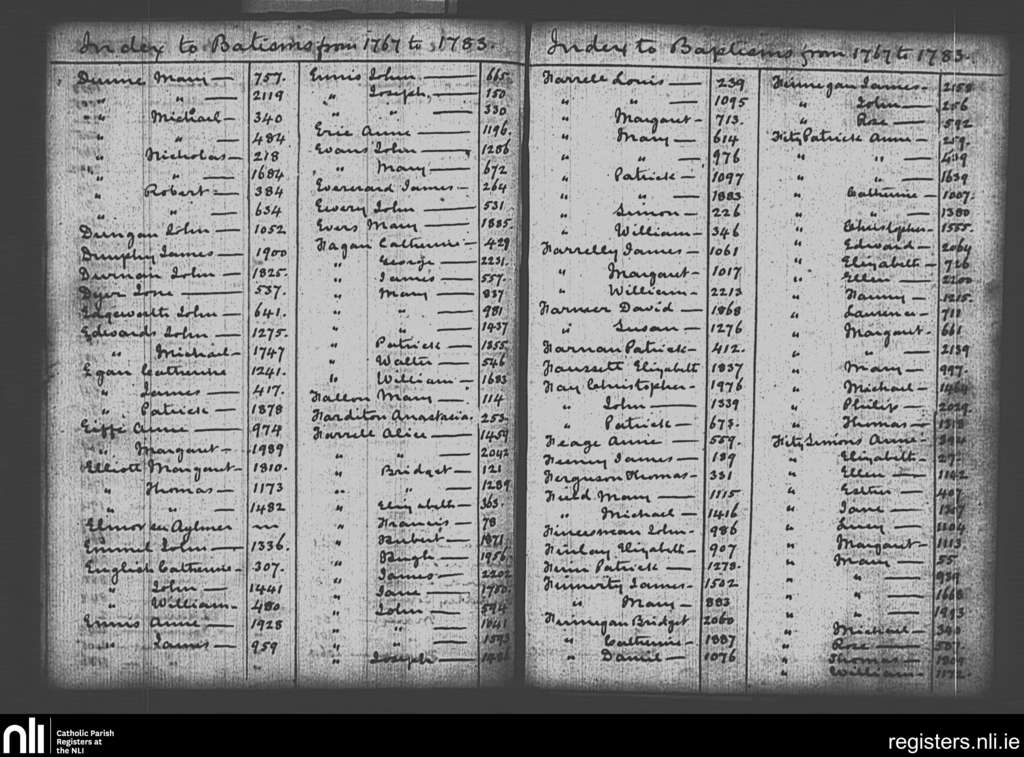 Index to Batisms from 1767 to 1783.
Dunne Mary — 757.
" " — 2119
" Michael — 340
" " — 484
" Nicholas — 218
" " — 1684
" Robert — 384
" " — 634
Dungan John — 1052
Dunphy James — 1900
Durnan John — 1825.
Dyer Jone — 537.
Edgeworth John — 641.
Edwards John — 1275.
" Michael — 1747
Egan Catherine 1241.
" James — 417.
" Patrick — 1878
Eiffe Anne — 974
" Margaret — 1989
Elliott Margaret — 1810.
" Thomas — 1173
" " — 1482
Aylmer
Emmel John — 1336.
English Catherine — 307.
" John — 1441
" William — 480
Ennis Anne — 1928
" James — 959
Ennis John — 665.
" Joseph — 150
" " — 330
Eric Anne — 1196.
Evans John — 1286
" Mary — 672
Everard James — 264
Ewery John — 531
Evers Mary — 1885.
Fagan Catherine — 429
" George — 2231.
" James — 557.
" Mary — 837
" " — 981
" " — 1937
" Patrick — 1855.
" Walter — 546
" William — 1683
Fallon Mary — 114
Farditon Anastacia. 253.
Farrell Alice — 1459
" " — 2042
" Bridget — 121
" " — 1289
" Elizabeth — 363.
" Francis — 78
" Hubert — 1871
" Hugh — 1956
" James — 2202
" Jane — 1750.
" John — 594
" " — 1041
" " — 1593
" Joseph — 1486
Index to Baptisms from 1767 to 1783.
Farrell Louis — 239
" " — 1095
" Margaret — 713.
" Mary — 614
" " — 976
" Patrick — 1097
" " — 1883
" Simon — 226
" William — 346
Farrelley James — 1061
" Margaret — 1017
" William — 2213
Farmer David — 1868
" Susan — 1276
Farnan Patrick — 412.
Faussett Elizabeth 1837
Fay Christopher — 1976
" John — 1339
" Patrick — 673.
Feage Anne — 559.
Feeney James — 189
Ferguson Thomas — 331
Field Mary — 1115
" Michael — 1416
John — 986
Finlay Elizabeth — 907
Finn Patrick — 1273.
Finnerty James — 1502
" Mary — 883
Finnegan Bridget 2060
" Catherine — 1887
" Daniel — 1076
Finnegan James — 2158
" John — 256
" Rose — 592
FitzPatrick Anne — 259.
" " — 409
" " — 1639
" Catherine — 1007.
" " — 1380
" Christopher — 1555.
" Edward — 2064
" Elizabeth — 726
" Ellen — 2200
" Fanny — 1215.
" Laurence — 711
" Margaret — 661
" " — 2139
" Mary — 997.
" Michael — 1464
" Philip — 2029
" Thomas —
FitzSimons Anne —
" Elizabeth —
" Ellen — 1142
" Esther — 407
" Jane — 1307
" Lucy — 1104
" Margaret — 1113
" Mary — 55
" " — 939
" " — 1668
" " — 1993
" Michael —
" Rose —
" Thomas —
" William —
nli Catholic Parish
Registers at
the NLI
registers.nli.ie